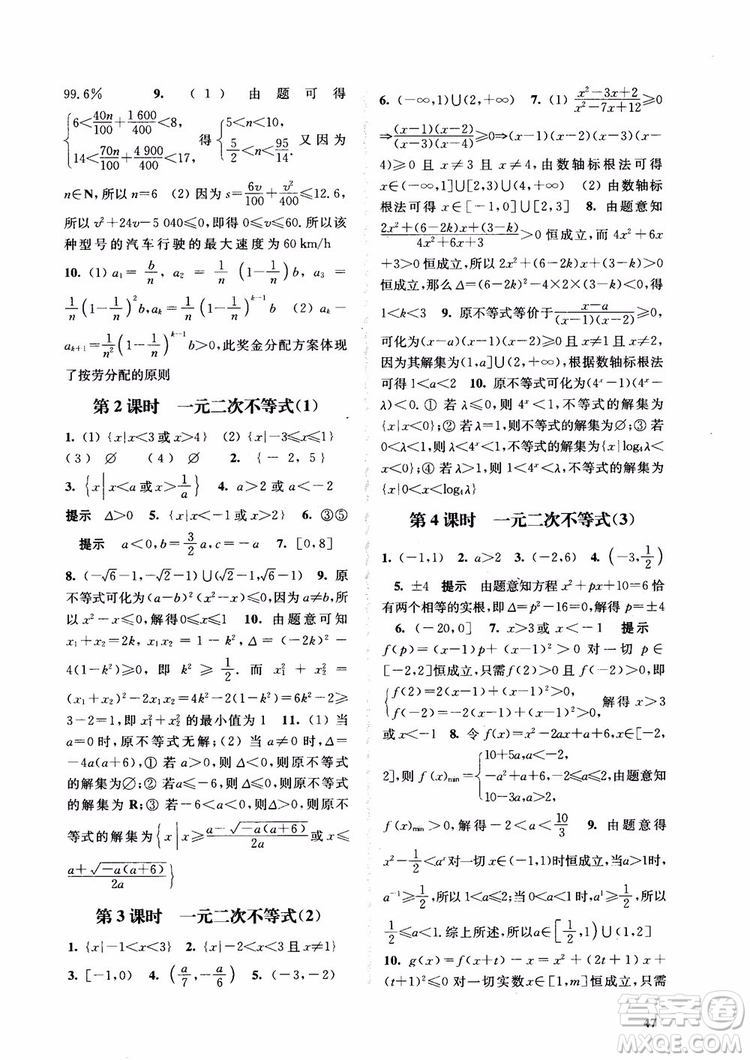 99.6% 9. (1) 由题可得
{6<40n/100+1 600/400<8, 14<70n/100+4 900/400<17, 得{5<n<10, 5/2<n<95/14. 又因为
n∈N,所以 n=6 (2) 因为 s=6v/100+v²/400≤12.6,
所以 v²+24v-5 040≤0,即得 0<v≤60,所以该
种型号的汽车行驶的最大速度为 60 km/h
10. (1) a₁=b/n, a₂=1/n(1-1/n)b, a₃=
1/n(1-1/n)²b,aₖ=1/n(1-1/n)ᵏ⁻¹b (2) aₖ-
aₖ₊₁=1/n²(1-1/n)ᵏ⁻¹b>0,此奖金分配方案体现
了按劳分配的原则
第 2 课时 一元二次不等式(1)
1. (1) {x|x<3 或 x>4} (2) {x|-3≤x≤1}
(3) ∅ (4) ∅ 2. {-2,5}
3. {x|x<a 或 x>1/a} 4. a>2 或 a<-2
提示 Δ>0 5. {x|-9<x<2} 6. ③⑤
提示 a<0,b=3/2a 7. [0,8]
8. (-√6-1,-√3-1)∪(√3-1,√6-1) 9. 原
不等式可化为(a-b)²(x²-x)≤0. 因为 a≠b,
所以 x²-x≤0,解得 0≤x≤1 10. 由题意可知
x₁+x₂=2k, x₁x₂=1-k². 又因为 Δ=4k²-
4(1-k²)≥0,所以 k²≥1/2. 因为 x₁²+x₂²=
(x₁+x₂)²-2x₁x₂=4k²-2(1-k²)=6k²-2≥
1,所以 x₁²+x₂² 的最小值为 1 11. (1) 当
a=0 时,原不等式无解;(2) 当 a<0 时,Δ=
-4a(a+6),① 若 a<-6,则 Δ<0,原不等式
的解集为∅;② 若 a=-6,则 Δ=0,原不等式
的解集为 R;③ 若 -6<a<0,则 Δ>0,原不
等式的解集为{x|x≥(a-√-a(a+6))/2a 或 x≤
(a+√-a(a+6))/2a}
第 3 课时 一元二次不等式(2)
1. {x|-1<x<3} 2. {x|-2<x<2 且 x≠1}
3. [-1,0) 4. (a/7,-a/6) 5. (-3,-2)
6. (-∞,1)∪(2,+∞) 7. (1) (x²-3x+2)/(x²-7x+12)≥0
⇒(x-1)(x-2)/(x-3)(x-4)≥0⇒(x-1)(x-2)(x-3)(x-
4)≥0 且 x≠3 且 x≠4,由数轴标根法可得
x∈(-∞,1]∪[2,3)∪(4,+∞) (2) 由数轴标
根法可得 x∈[-1,0]∪[2,3] 8. 由题意可知
(2x²+(6-2k)x+(3-k))/(4x²+6x+3)>0 恒成立,因为 4x²+6x
+3>0 恒成立,所以 2x²+(6-2k)x+(3-k)>
0 恒成立,Δ=(6-2k)²-4×2×(3-k)<0,解得
1<k<3 9. 原不等式等价于(x-a)/(x-1)(x-2)>0,
可化为(x-1)(x-2)(x-a)>0 且 x≠1 且 x≠2.
因为其解集为(1,a)∪(2,+∞),根据数轴标根法
可得 1<a<2 10. 原不等式可化为(4ˣ-1)(4ˣ-
λ)<0. ① 若 λ≤0,则 4ˣ-λ>0,不等式的解集为
{x|x<0};② 若 0<λ<1,则不等式的解集为{x|log₄λ<
x<0};③ 若 λ=1,则不等式的解集为
∅;④ 若 λ>1,则不等式的解集为
{x|0<x<log₄λ}
第 4 课时 一元二次不等式(3)
1. (-1,1) 2. a>2 3. (-2,6) 4. (-3,1/2)
5. ±4 提示 由题意知方程 x²+px+4=0 恰
有两个相等的实根,所以 Δ=p²-16=0,解得 p=±4
6. (-20,0] 7. x>3 或 x<-1 提示
f(p)=(x-1)p+(x²-2x+1)>0 对一切 p∈
[-2,2]恒成立,只需 f(2)>0 且 f(-2)>0,即
{f(2)=2(x-1)+(x²-2x+1)>0, f(-2)=-2(x-1)+(x²-2x+1)>0, 解得 x>3
或 x<-1 8. 令 f(x)=x²-2ax+6, x∈[-2,
2],则 f(x)min={10+5a,a<-2 6-a²,-2≤a≤2, 10-5a,a>2. 由题意可知
f(x)min>0,解得 -2<a<10/3 9. 由题意可得
x²-1/2<aˣ 对一切 x∈(-1,1)时恒成立,所以
1/2≤a<1 或 1<a≤2. 综上所述,所以 a∈[1/2,1)∪(1,2]
10. g(x)=f(x+t)-x=x²+(2t+1)x+
(t+1)²≤0 对一切实数 x∈[1,m]恒成立,只需
47